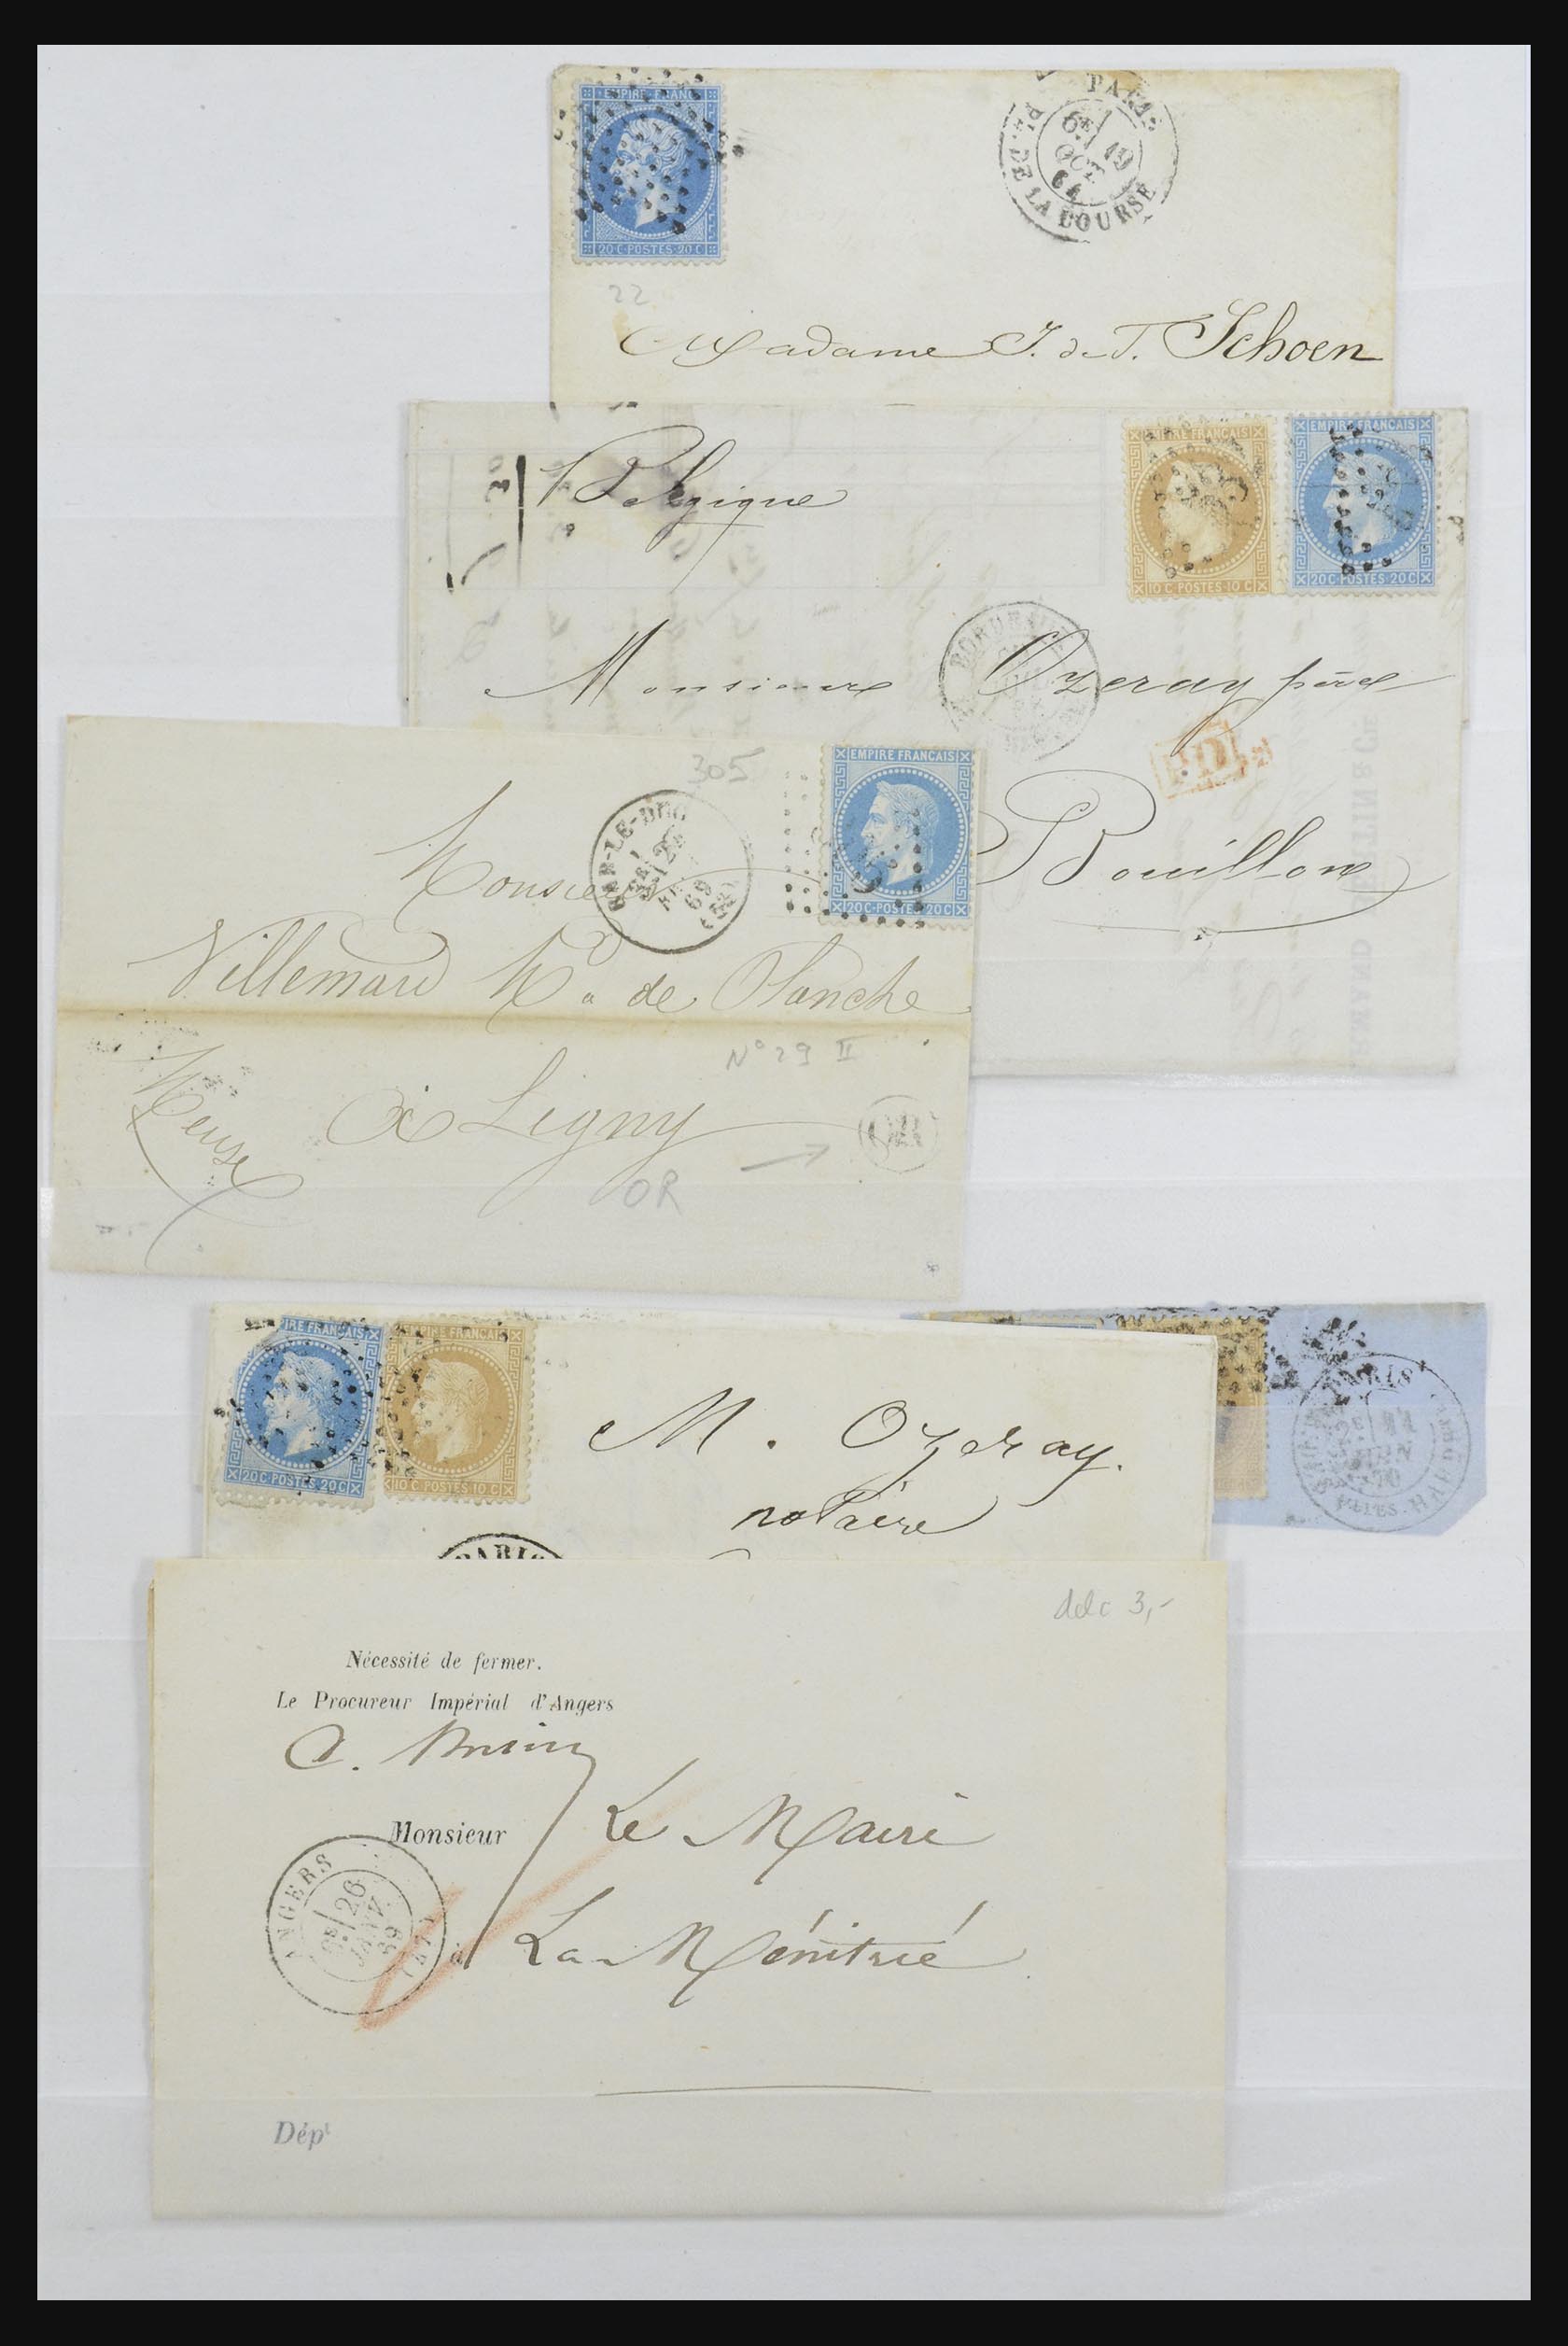 EMPIRE FRANC
20 C · POSTES · 20 C
PARIS
PL. DE LA BOURSE
6E 19
OCT
64
22
Madame J. de T. Schoen
Belgique
EMPIRE FRANÇAIS
10 C · POSTES · 10 C
EMPIRE FRANÇAIS
20 C · POSTES · 20 C
BORDEAUX
Monsieur Ozeray père
P.D.
Bouillon
305
EMPIRE FRANÇAIS
20 C · POSTES · 20 C
BAR-LE-DUC
69
Monsieur
Villemard Md de Planche
N° 29 II
à Ligny
Meuse
OR
OR
PIRE FRANÇAIS
20 C · POSTES · 20 C
EMPIRE FRANÇAIS
10 C · POSTES · 10 C
M. Ozeray.
notaire
PARIS
PARIS
JUIN
70
delc 3,-
Nécessité de fermer.
Le Procureur Impérial d'Angers
Monsieur Le Maire
ANGERS
26
JANV.
69
(47)
à La Ménitrié
Dépt